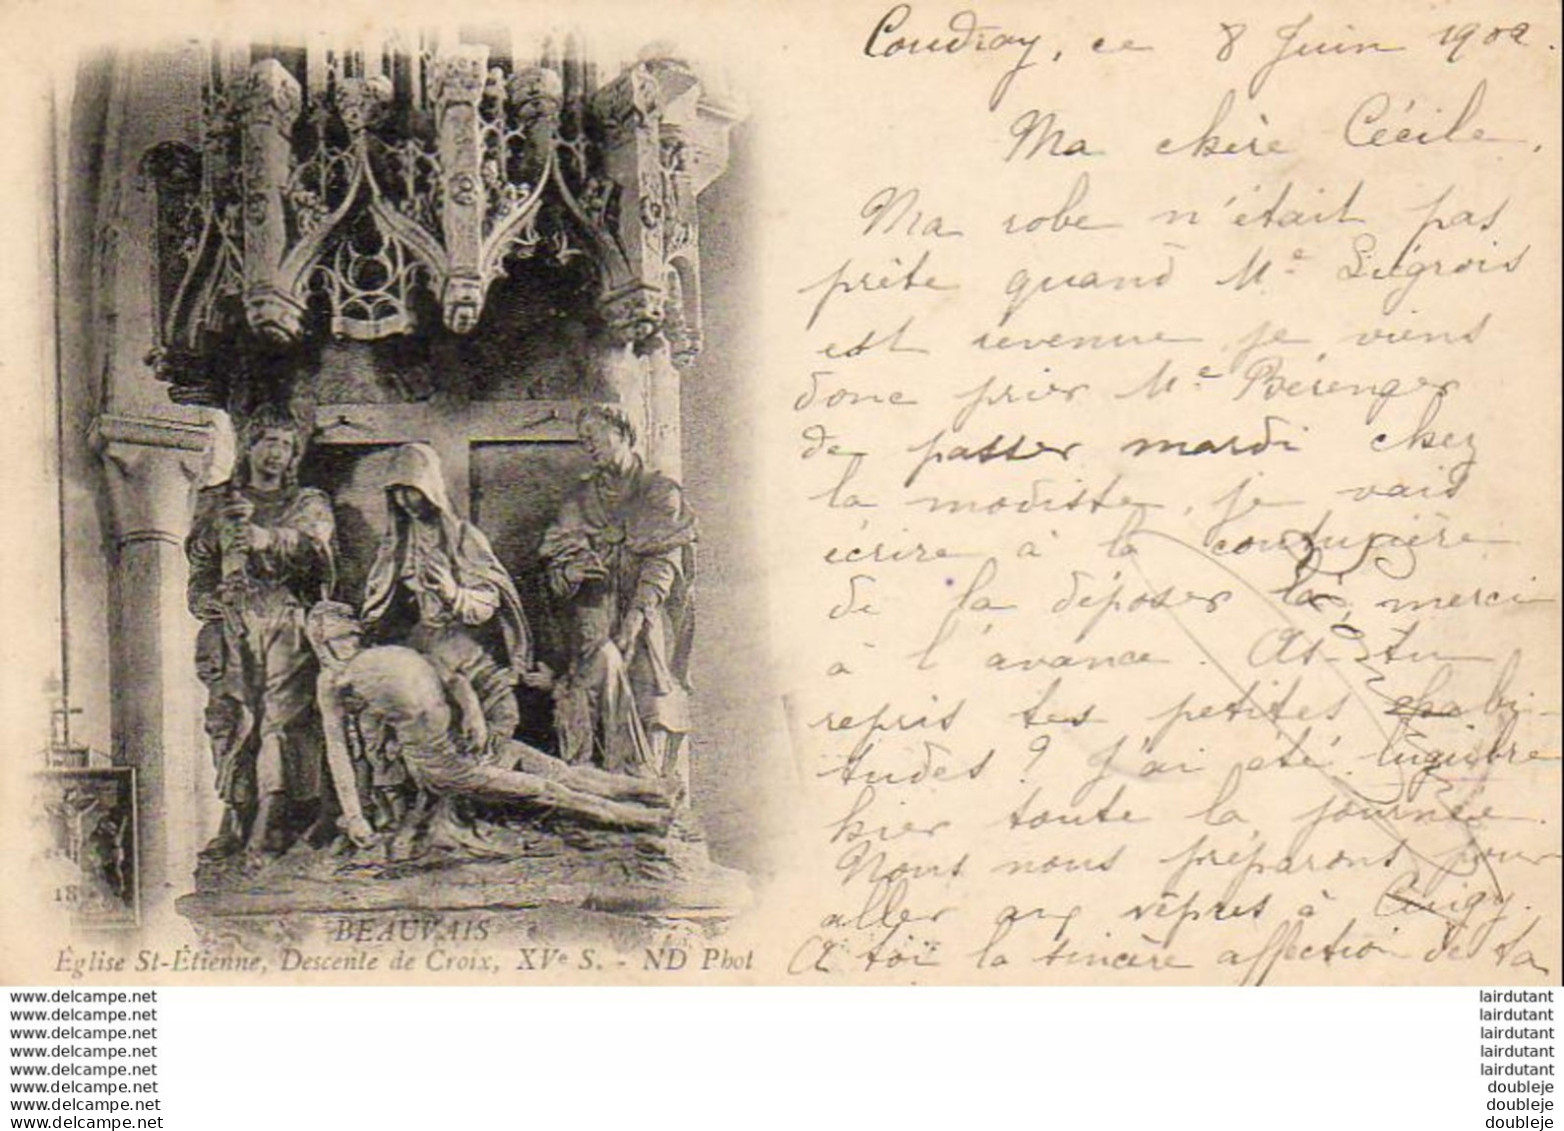 Coudray, ce 8 Juin 1902.
Ma chère Cécile,
Ma robe n'était pas
prête quand Me Légrois
est revenue, je viens
donc prier Me Bérenger
de passer mardi chez
la modiste, je vais
écrire à la couturière
de la déposer là, merci
à l'avance. As-tu
repris tes petites habi-
tudes? J'ai été lugubre
hier toute la journée.
Nous nous préparons pour
aller aux vêpres à Cuigy.
A toi la sincère affection de ta
18
BEAUVAIS
Église St-Étienne, Descente de Croix, XVe S. - ND Phot
www.delcampe.net
www.delcampe.net
www.delcampe.net
www.delcampe.net
www.delcampe.net
www.delcampe.net
www.delcampe.net
www.delcampe.net
lairdutant
lairdutant
lairdutant
lairdutant
lairdutant
doubleje
doubleje
doubleje